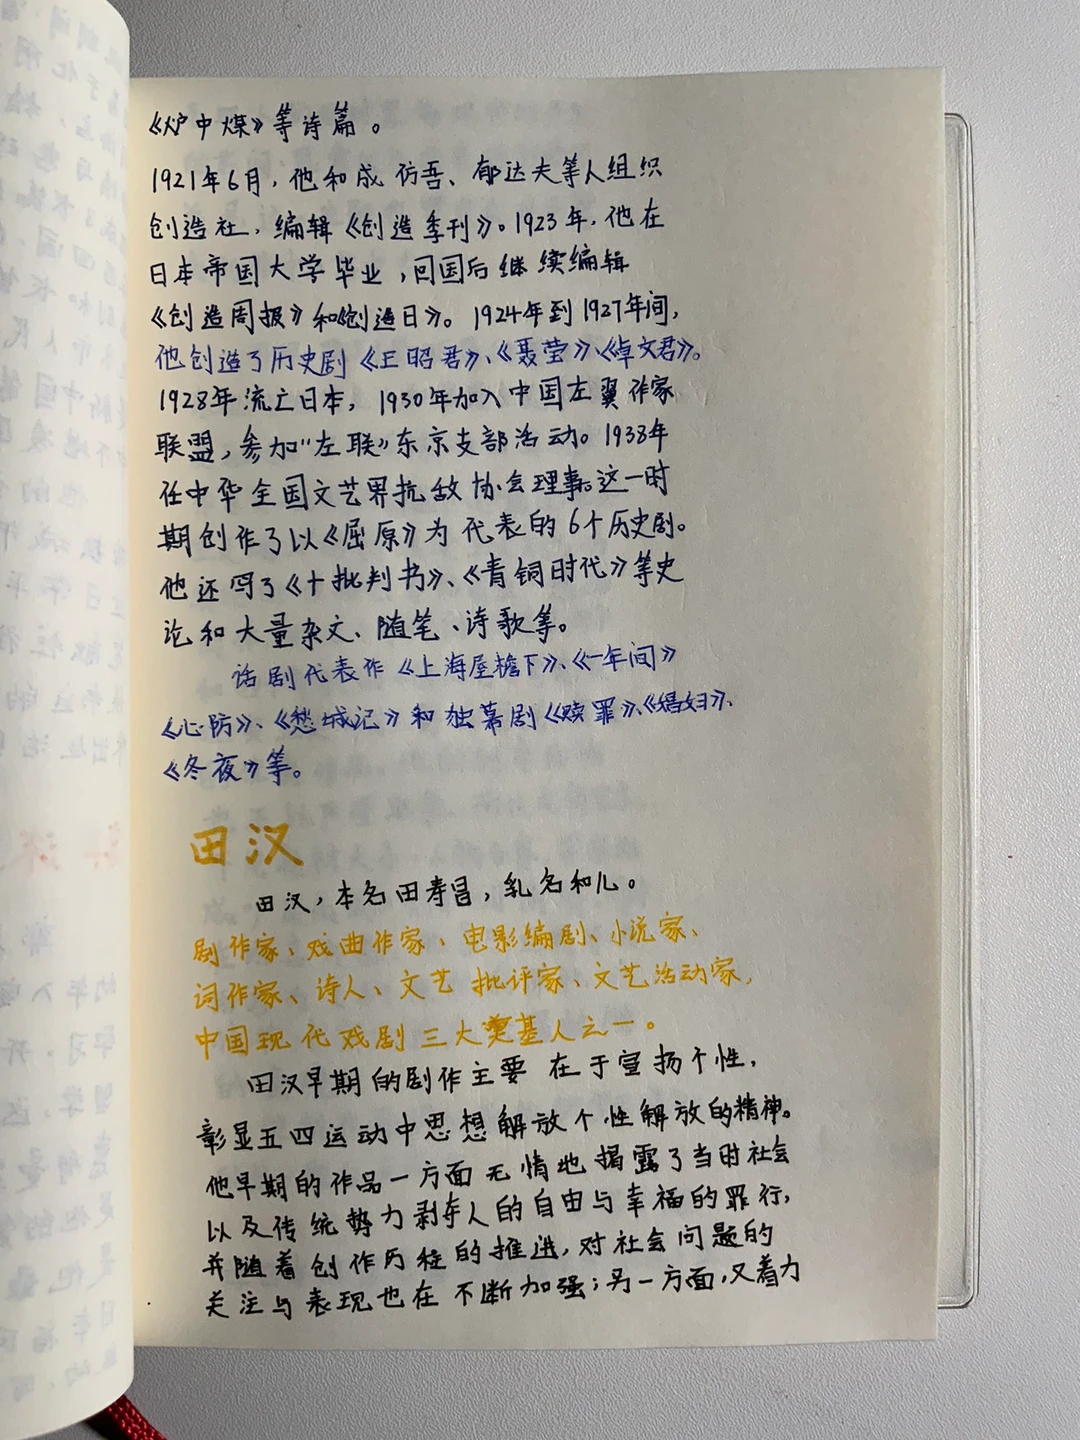 《炉中煤》等诗篇。
1921年6月，他和成仿吾、郁达夫等人组织
创造社，编辑《创造季刊》。1923年，他在
日本帝国大学毕业，回国后继续编辑
《创造周报》和《创造日》。1924年到1927年间，
他创造了历史剧《王昭君》、《聂莹》、《卓文君》。
1928年流亡日本，1930年加入中国左翼作家
联盟，参加“左联”东京支部活动。1938年
任中华全国文艺界抗敌协会理事。这一时
期创作了以《屈原》为代表的6个历史剧。
他还写了《十批判书》、《青铜时代》等史
论和大量杂文、随笔、诗歌等。
话剧代表作《上海屋檐下》、《一年间》
《心防》、《愁城记》和独幕剧《赎罪》、《娼妇》、
《冬夜》等。
田汉
田汉，本名田寿昌，乳名和儿。
剧作家、戏曲作家、电影编剧、小说家、
词作家、诗人、文艺批评家、文艺活动家，
中国现代戏剧三大奠基人之一。
田汉早期的剧作主要在于宣扬个性，
彰显五四运动中思想解放个性解放的精神。
他早期的作品一方面无情地揭露了当时社会
以及传统势力剥夺人的自由与幸福的罪行，
并随着创作历程的推进，对社会问题的
关注与表现也在不断加强；另一方面，又着力